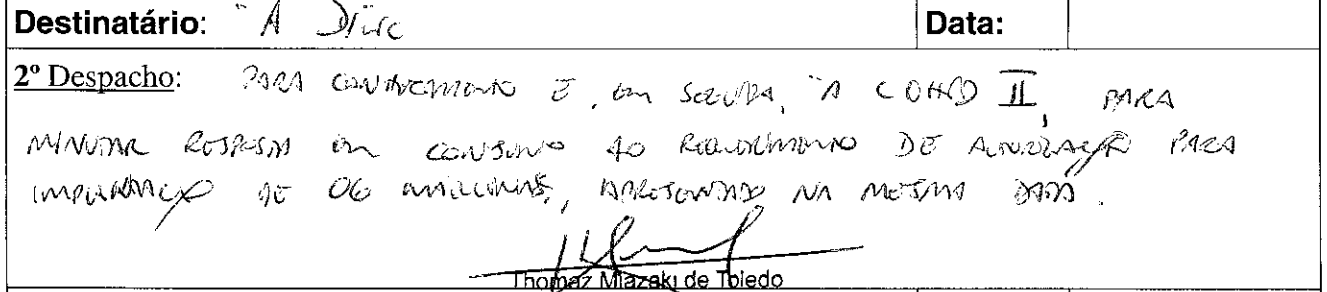 Destinatário: À Data:
2º Despacho: PARA CONHECIMENTO E, EM SEGUIDA, À COHID II, PARA
MINUTAR RESPOSTA EM CONJUNTO AO REQUERIMENTO DE AUTORIZAÇÃO PARA
IMPORTAÇÃO DE 06 MÁQUINAS, APRESENTADO NA MESMA DATA.
Thomaz Miazaki de Toledo